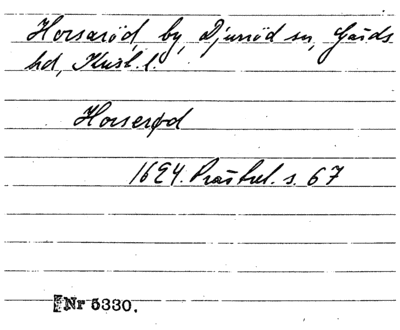 Horsaröd, by, Djurröd sn, Gärds
hd, Krist. l.
Horserød
1694. Prästrel. s. 67
Nr 5330.